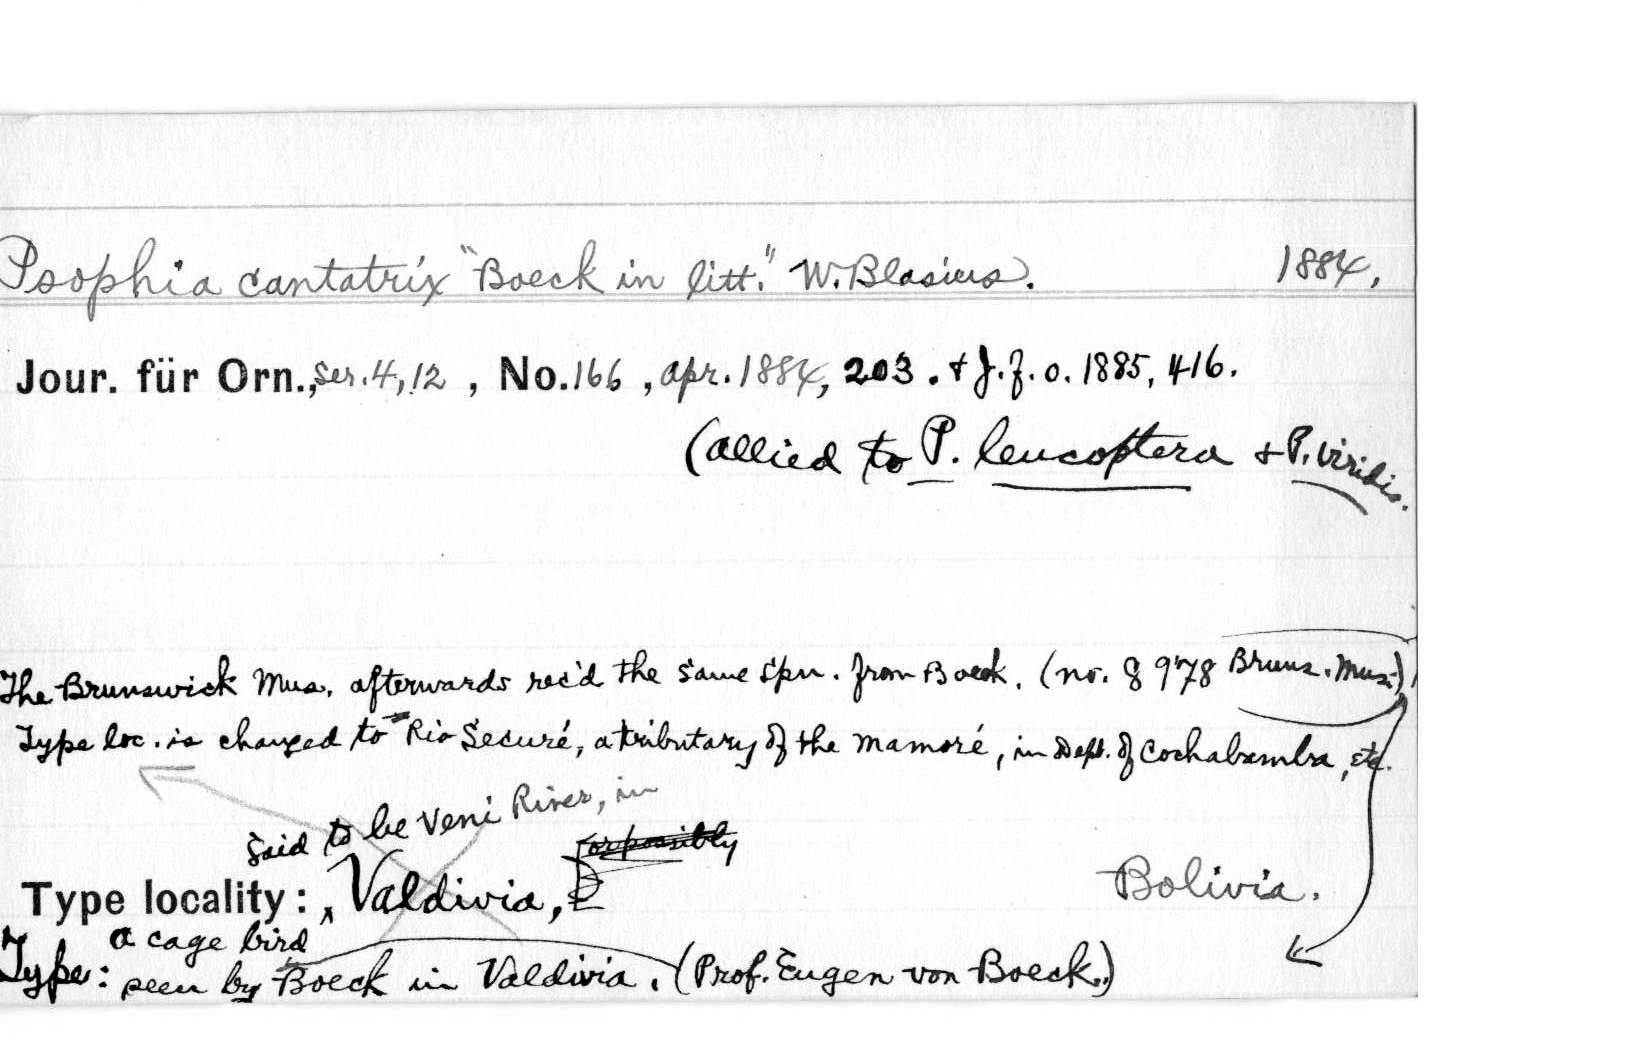 Psophia cantatrix "Boeck in litt." W. Blasius. 1884,
Jour. für Orn., ser. 4, 12 , No. 166 , apr. 1884, 203 . & J. f. o. 1885, 416.
(allied to P. leucoptera & P. viridis.
The Brunswick Mus. afterwards rec'd the same spn. from Boeck. (no. 8978 Bruns. Mus.)
Type loc. is changed to Rio Securé, a tributary of the Mamoré, in Dept. of Cochabamba, etc.
said to be Veni River, in
or possibly
Type locality: Valdivia, Bolivia.
a cage bird
Type: seen by Boeck in Valdivia. (Prof. Eugen von Boeck.)